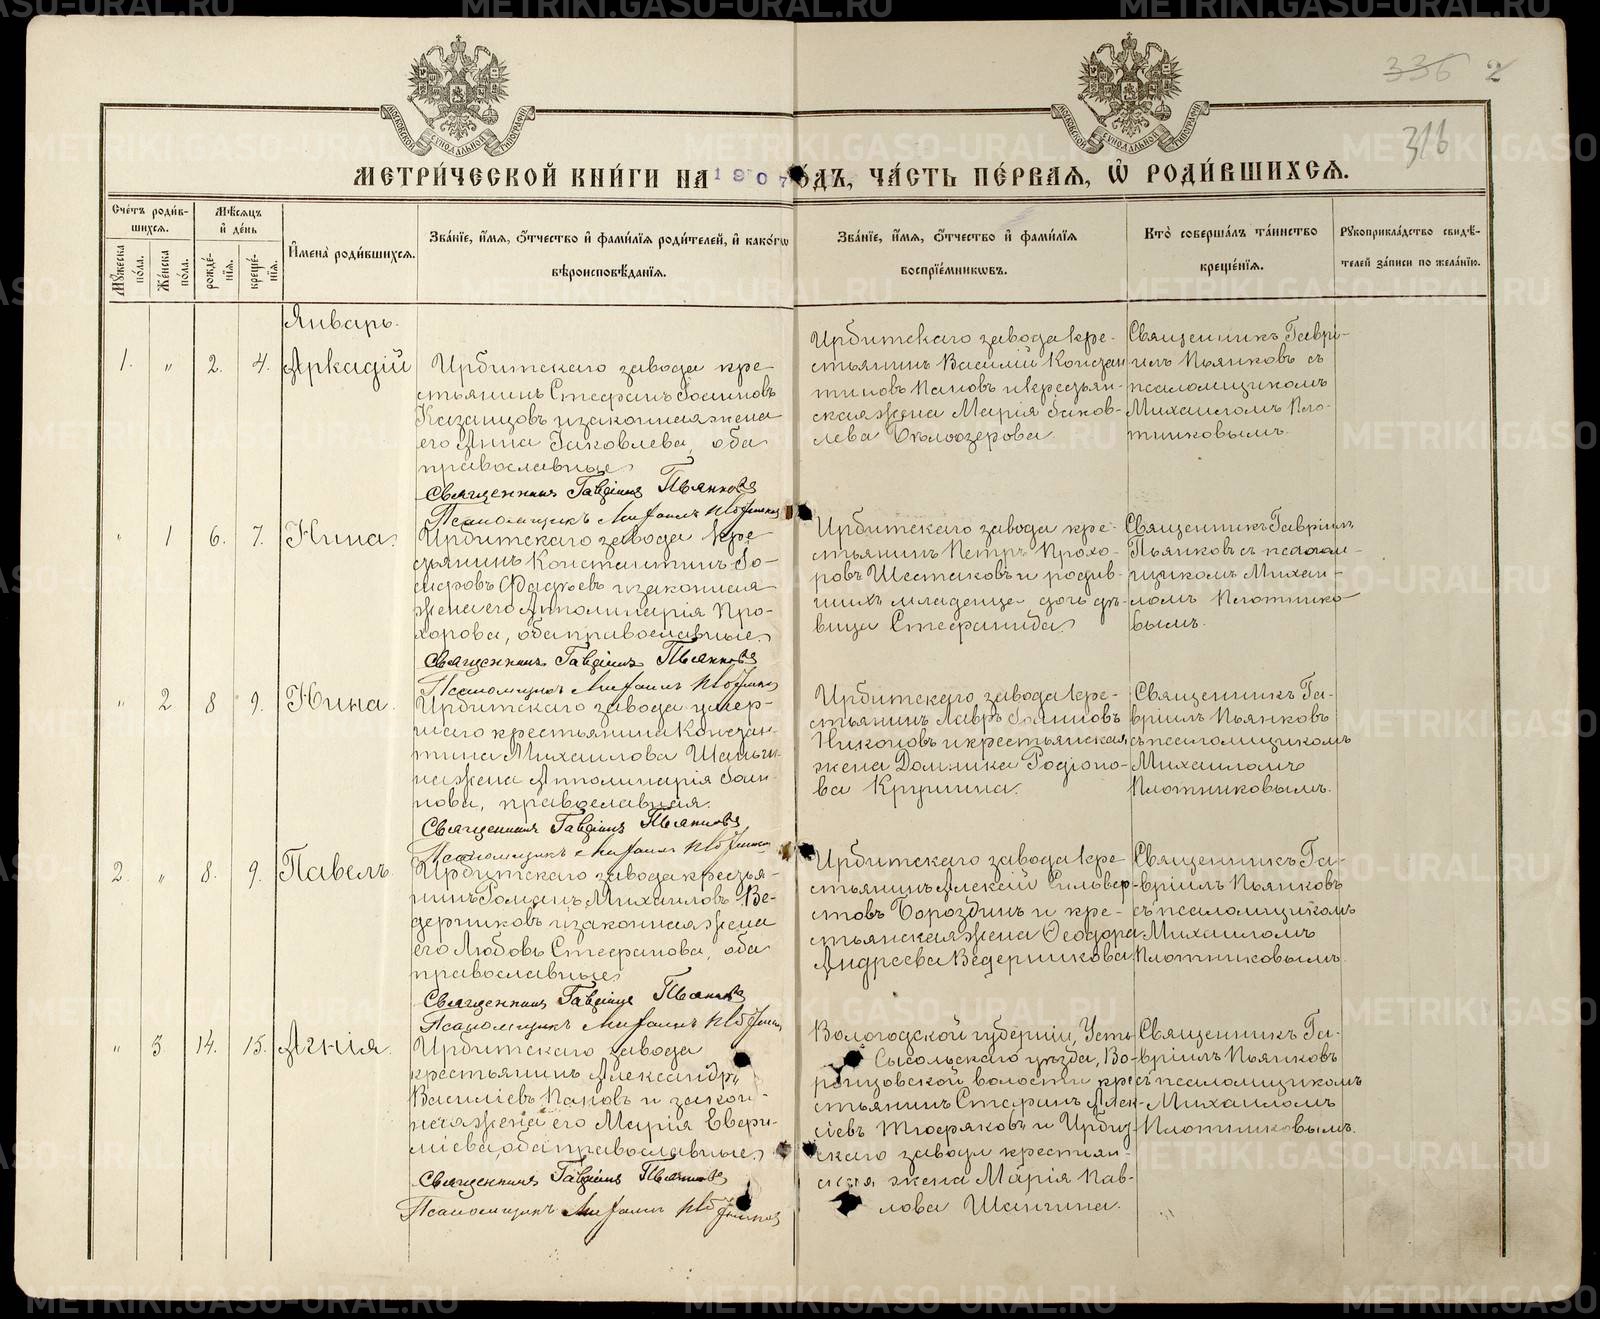 336 2
316
МЕТРИ́ЧЕСКОЙ КНИ́ГИ НА 1907 ГО́ДЪ, ЧА́СТЬ ПЕ́РВАѦ, Ѽ РОДИ́ВШИХСѦ.
Сче́тъ роди́в-
шихсѧ.
Мꙋ́жеска по́ла.
Же́нска по́ла.
Мѣ́сѧцъ
и҆ де́нь
рожде́-
нїѧ.
креще́-
нїѧ.
И҆мена̀ роди́вшихсѧ.
Зва́нїе, и҆́мѧ, ѻ҆́тчество и҆ фами́лїѧ роди́телей, и҆ како́гѡ
вѣроисповѣ́данїѧ.
Зва́нїе, и҆́мѧ, ѻ҆́тчество и҆ фами́лїѧ
воспрїе́мникѡвъ.
Кто̀ соверша́лъ та́инство
креще́нїѧ.
Рꙋкоприкла́дство свидѣ́-
телей за́писи по жела́нїю.
Январь.
1. " 2. 4. Аркадій
Ирбитскаго завода кре-
стьянинъ Стефанъ Іоанновъ
Казанцовъ и законная жена
его Анна Іаковлева, оба
православные
Священникъ Гавріилъ Пьянковъ
Псаломщикъ Михаилъ Плотниковъ
Ирбитскаго завода кре-
стьянинъ Василій Констан
тиновъ Пановъ и крестьян-
ская жена Марія Іаков-
лева Бѣлоозерова.
Священникъ Гаврі-
илъ Пьянковъ съ
псаломщикомъ
Михаиломъ Пло-
тниковымъ.
" 1 6. 7. Нина.
Ирбитскаго завода кре-
стьянинъ Константинъ Іо-
сифовъ Фадѣевъ и законная
жена его Апполинарія Про-
хорова, оба православные.
Священникъ Гавріилъ Пьянковъ
Псаломщикъ Михаилъ Плотниковъ
Ирбитскаго завода кре-
стьянинъ Петръ Прохо-
ровъ Шестаковъ и родив-
шихъ младенца дочь дѣ-
вица Стефанида.
Священникъ Гавріилъ
Пьянковъ съ псалом-
щикомъ Михаи-
ломъ Плотнико
вымъ.
" 2 8 9. Нина.
Ирбитскаго завода умер-
шаго крестьянина Констан-
тина Михаилова Шаньги-
на жена Апполинарія Іоан-
нова, православная.
Священникъ Гавріилъ Пьянковъ
Псаломщикъ Михаилъ Плотниковъ
Ирбитскаго завода кре-
стьянинъ Лавръ Іоанновъ
Никоновъ и крестьянская
жена Домника Родіоно-
ва Крушина.
Священникъ Га-
вріилъ Пьянковъ
съ псаломщикомъ
Михаиломъ
Плотниковымъ.
2. " 8. 9. Павелъ.
Ирбитскаго завода крестья-
нинъ Романъ Михаиловъ Ве-
дерниковъ и законная жена
его Любовь Стефанова, оба
православные
Священникъ Гавріилъ Пьянковъ
Псаломщикъ Михаилъ Плотниковъ
Ирбитскаго завода кре
стьянинъ Алексій Сильвер-
стовъ Бороздинъ и кре-
стьянская жена Ѳеодора
Андреева Ведерникова
Священникъ Га-
вріилъ Пьянковъ
съ псаломщикомъ
Михаиломъ
Плотниковымъ.
" 3 14. 15. Агнія.
Ирбитскаго завода
крестьянинъ Александръ
Василіевъ Пановъ и закон-
ная жена его Марія Евфи-
міева, оба православные.
Священникъ Гавріилъ Пьянковъ
Псаломщикъ Михаилъ Плотниковъ
Вологодской губерніи, Усть
Сысольскаго уѣзда, Во-
ронцовской волости кре
стьянинъ Стефанъ Алек-
сіевъ Тюфяковъ и Ирбит
скаго завода крестьян-
ская жена Марія Пав-
лова Шангина.
Священникъ Га-
вріилъ Пьянковъ
съ псаломщикомъ
Михаиломъ
Плотниковымъ.
METRIKI.GASO-URAL.RU